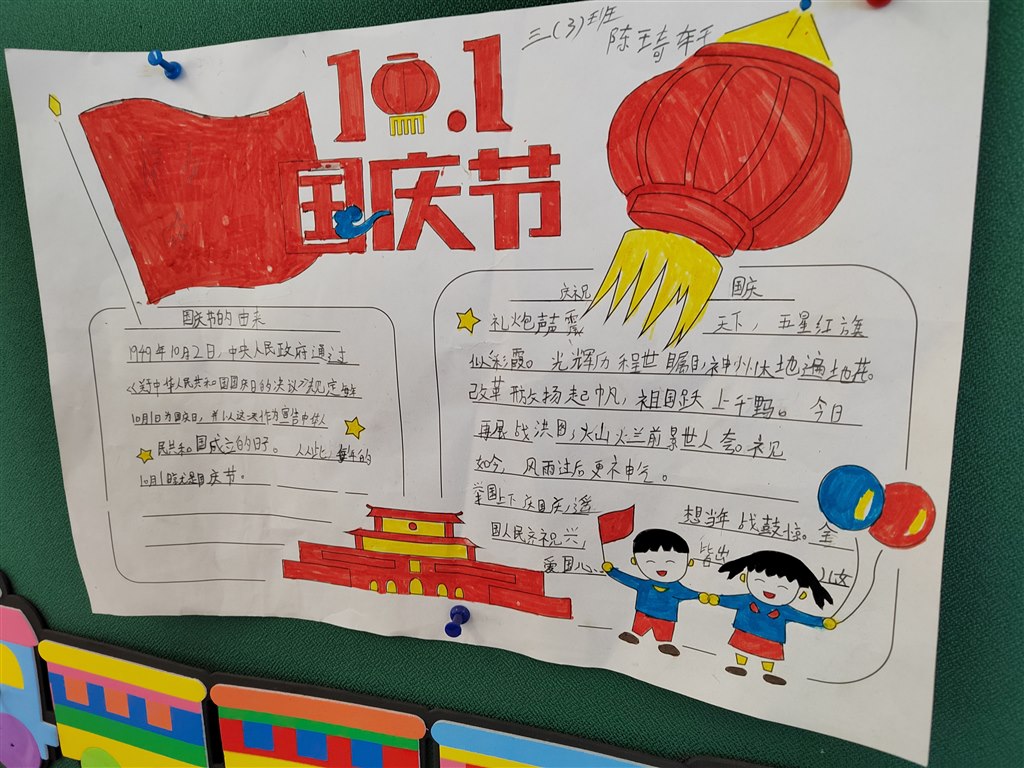 三(3)班
陈琦轩
10.1
国庆节
国庆节的由来
1949年10月2日,中央人民政府通过
《关于中华人民共和国国庆日的决议》规定每年
10月1日为国庆日,并以这一天作为宣告中华人
民共和国成立的日子。从此,每年的
10月1日就是国庆节。
庆祝 国庆
礼炮声声震 天下,五星红旗
似彩霞。光辉历程世瞩目,神州大地遍地花。
改革 扬起帆,祖国跃上千 。今日
再展战洪图,火山 兰前景世人夸。
如今,风雨过后更神气。
举国上下庆国庆,
国人民齐祝兴,
爱国心
想当年战鼓惊。全
皆出
儿女